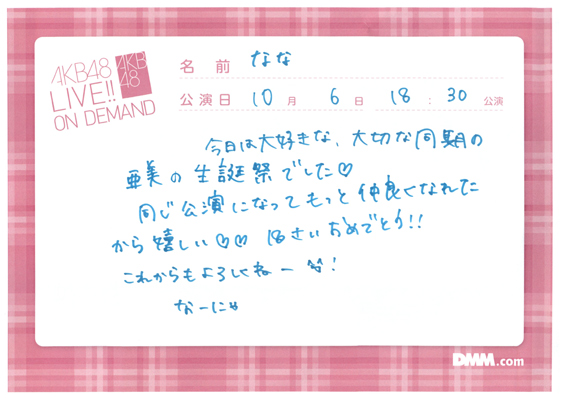 AKB48
LIVE!!
ON DEMAND
AKB
48
名前 なな
公演日 10月 6日 18:30 公演
今日は大好きな、大切な同期の
亜美の生誕祭でした♡
同じ公演になってもっと仲良くなれた
から嬉しい♡♡ 18さいおめでとう!!
これからもよろしくねー !
なーにゃ
DMM.com